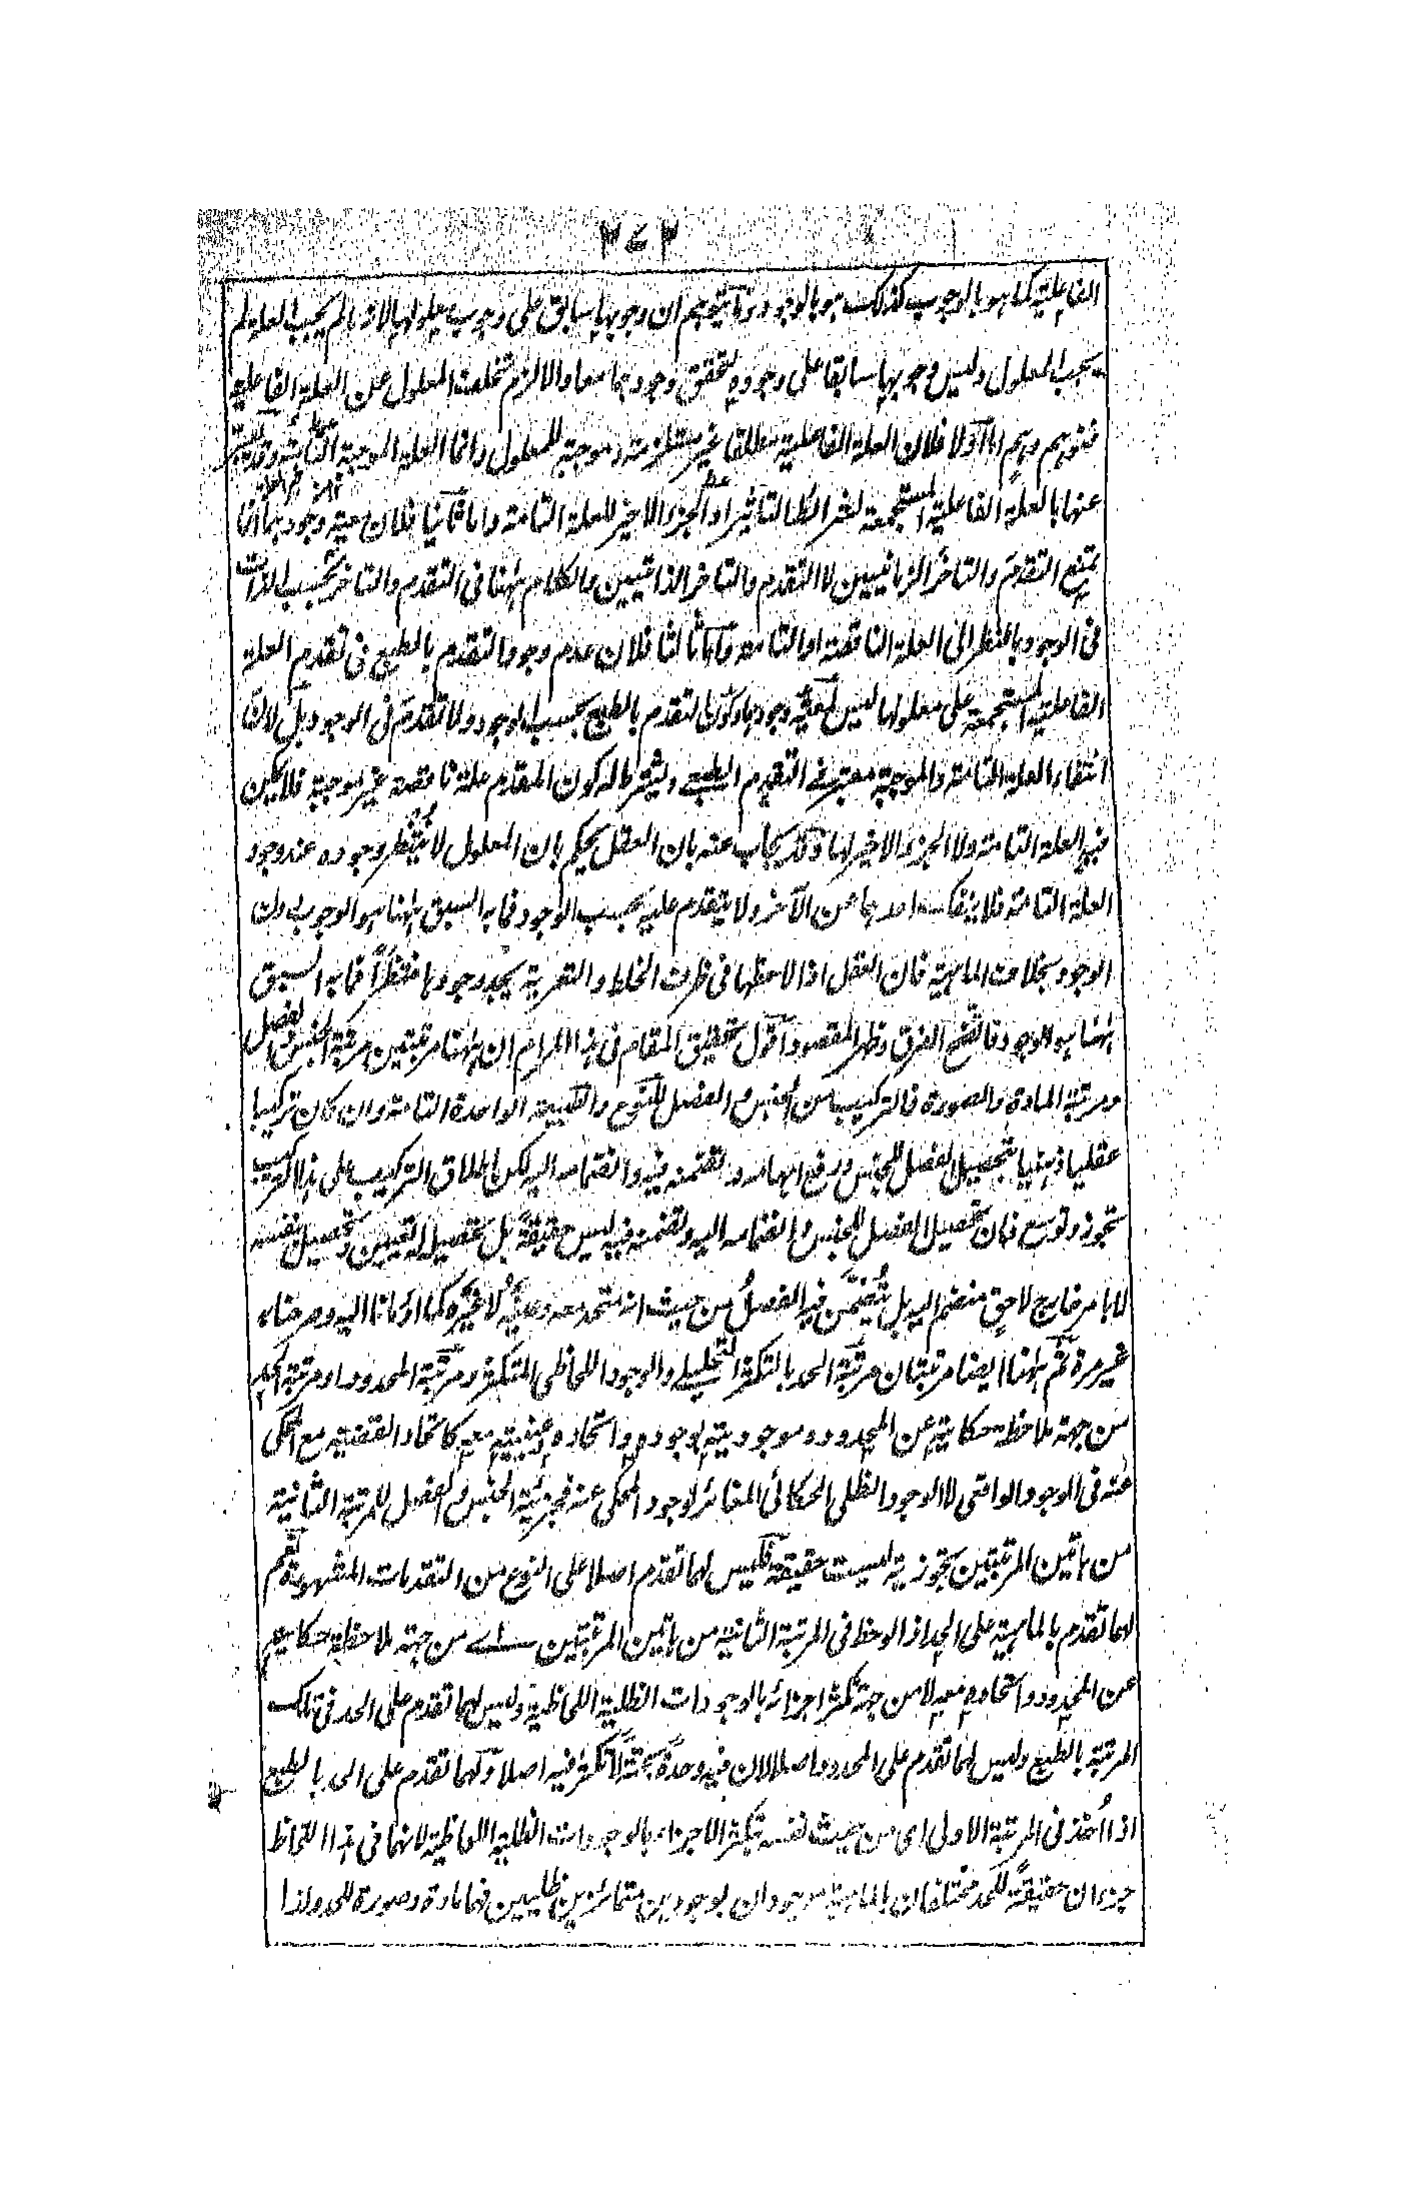 ٣٤٣
الفاعلية كما هو بالوجوب كذلك هو بالوجود وما يتوهم ان وجوبها سابق على وجوب معلولها لانه ما لم يجب العلة لم
يجب المعلول وليس وجوبها سابقا على وجوده لتحقق وجودهما معا والا لزم تخلف المعلول عن العلة الفاعلية
فتوهم وهم اما اولا فلان العلة الفاعلية مطلقا غير مستلزمة وموجبة للمعلول وانما العلة الموجبة التامة وقد
عنها بالعلة الفاعلية المستجمعة لشرائط التاثير او الجزء الاخير للعلة التامة واما ثانيا فلان معية وجودهما انما
يمتنع التقدم والتاخر الزمانيين لا التقدم والتاخر الذاتيين والكلام ههنا فى التقدم والتاخر بحسب الذات
فى الوجود بالنظر الى العلة الناقصة او التامة واما ثالثا فلان عدم وجود التقدم بالطبع فى تقدم العلة
الفاعلية المستجمعة على معلولها ليس لمعية وجودهما وكون التقدم بالطبع بحسب الوجود ولا تقدم فى الوجود بل لان
انتفاء العلة التامة والموجبة معتبر فى التقدم الطبعي ويشترط له كون المقدم علة ناقصة غير موجبة فلا يكون
فيه العلة التامة ولا الجزء الاخير لها وقد يجاب عنه بان العقل يحكم بان المعلول لا ينتظر وجوده عند وجود
العلة التامة فلا ينفك احدهما عن الآخر ولا يتقدم عليه بحسب الوجود فما به السبق ههنا هو الوجوب دون
الوجود بخلاف الماهية فان العقل اذا لاحظها فى ظرف الخلط والتعرية يجد وجودها منتظرًا فما به السبق
ههنا هو الوجود فاتضح الفرق وظهر المقصود اقول تحقيق المقام فى هذا المرام ان ههنا مرتبتين مرتبة الجنس والفصل
ومرتبة المادة والصورة فالتركيب من الجنس والفصل للنوع والطبيعة الواحدة التامة وان كان تركيبا
عقليا ذهنيا بتحصيل الفصل للجنس ورفع ابهامه وتضمنه فيه وانضمامه اليه لكن اطلاق التركيب على هذا التركيب
تجوز وتوسع فان تحصيل الفصل للجنس وانضمامه اليه وتضمنه فيه ليس حقيقة بل تحصيل له بتعيين وتحصيل بنفسه
لا بامر خارج لاحق منضم اليه بل تُضمَّن فيه الفصلُ من حيث انه متحد معه وعينُه لا غيره كما اومانا اليه وصرحناه
غير مرة ثم ههنا ايضا مرتبتان مرتبة الحد بالتكثر التحليلى والوجود اللحاظى المتكثر ومرتبة المحدود او مرتبة الحد
من جهة ملاحظة حكايته عن المحدود وموجوديته بوجوده واتحاده وعينيته معه كاتحاد القضية مع المحكى
عنه فى الوجود الواقعى لا الوجود الظلى الحكائى المغائر لوجود المحكى عنه فجزئية الجنس والفصل للمرتبة الثانية
من هاتين المرتبتين تجوزية ليست حقيقة فليس لهما تقدم اصلا على النوع من التقدمات المشهورة نعم
لهما تقدم بالماهية على الحد اذا لوحظ فى المرتبة الثانية من هاتين المرتبتين اے من جهة ملاحظة حكايته
عن المحدود واتحاده معه لا من جهة تكثر اجزائه بالوجودات الظلية اللحاظية وليس لهما تقدم على الحد فى تلك
المرتبة بالطبع وليس لهما تقدم على المحدود اصلا لان فيه وحدةً بحتةً لا تكثر فيه اصلا ولهما تقدم على الحد بالطبع
اذا اُخذ فى المرتبة الاولى اى من حيث نفسه بتكثر الاجزاء بالوجودات الظلية اللحاظية لانهما فى هذا اللحاظ
جزءان حقيقةً للحد مختلفان بالماهية موجودان بوجودين متمائزين ظليين فهما مادة وصورة للحد ولذا